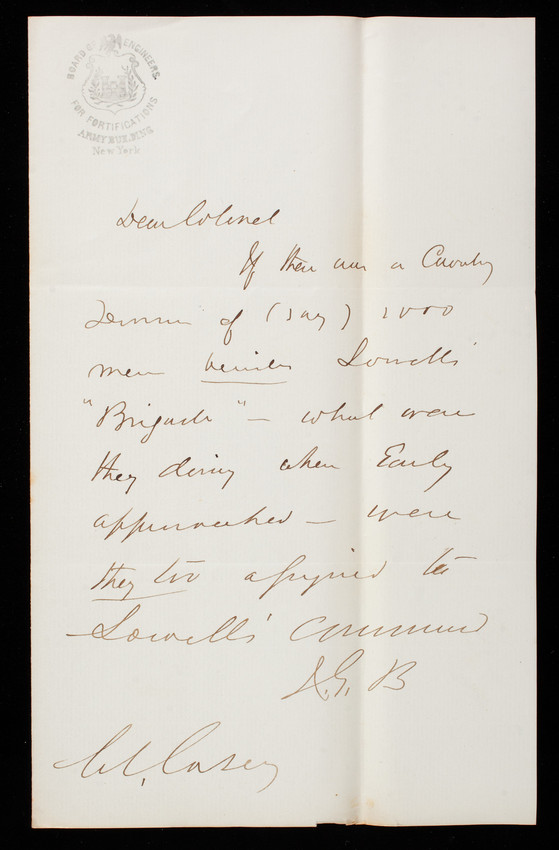 BOARD OF ENGINEERS.
FOR FORTIFICATIONS
ARMY BUILDING
New York
Dear Colonel
If there was a Cavalry
Division of (say) 1000
men besides Lowell's
"Brigade" - what were
they doing when Early
approached - were
they too assigned to
Lowell's command
J.G. B
Col. Casey